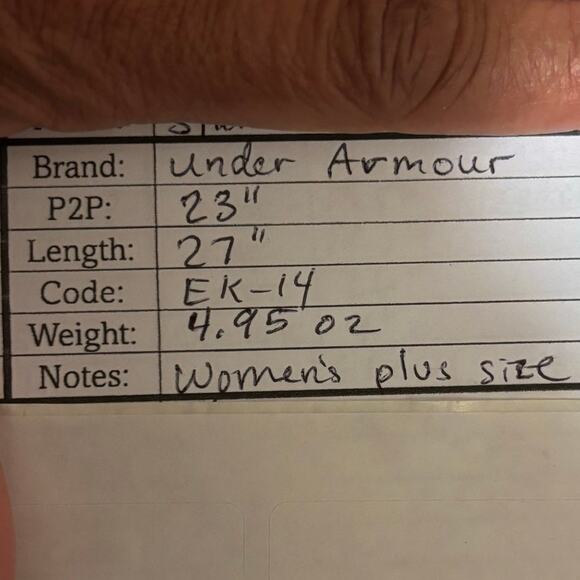 Brand: Under Armour
P2P: 23"
Length: 27"
Code: EK-14
Weight: 4.95 oz
Notes: Women's plus size